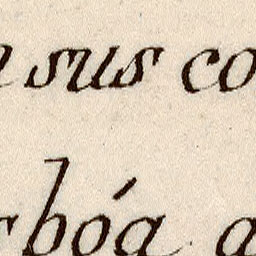 sus co
bóa a